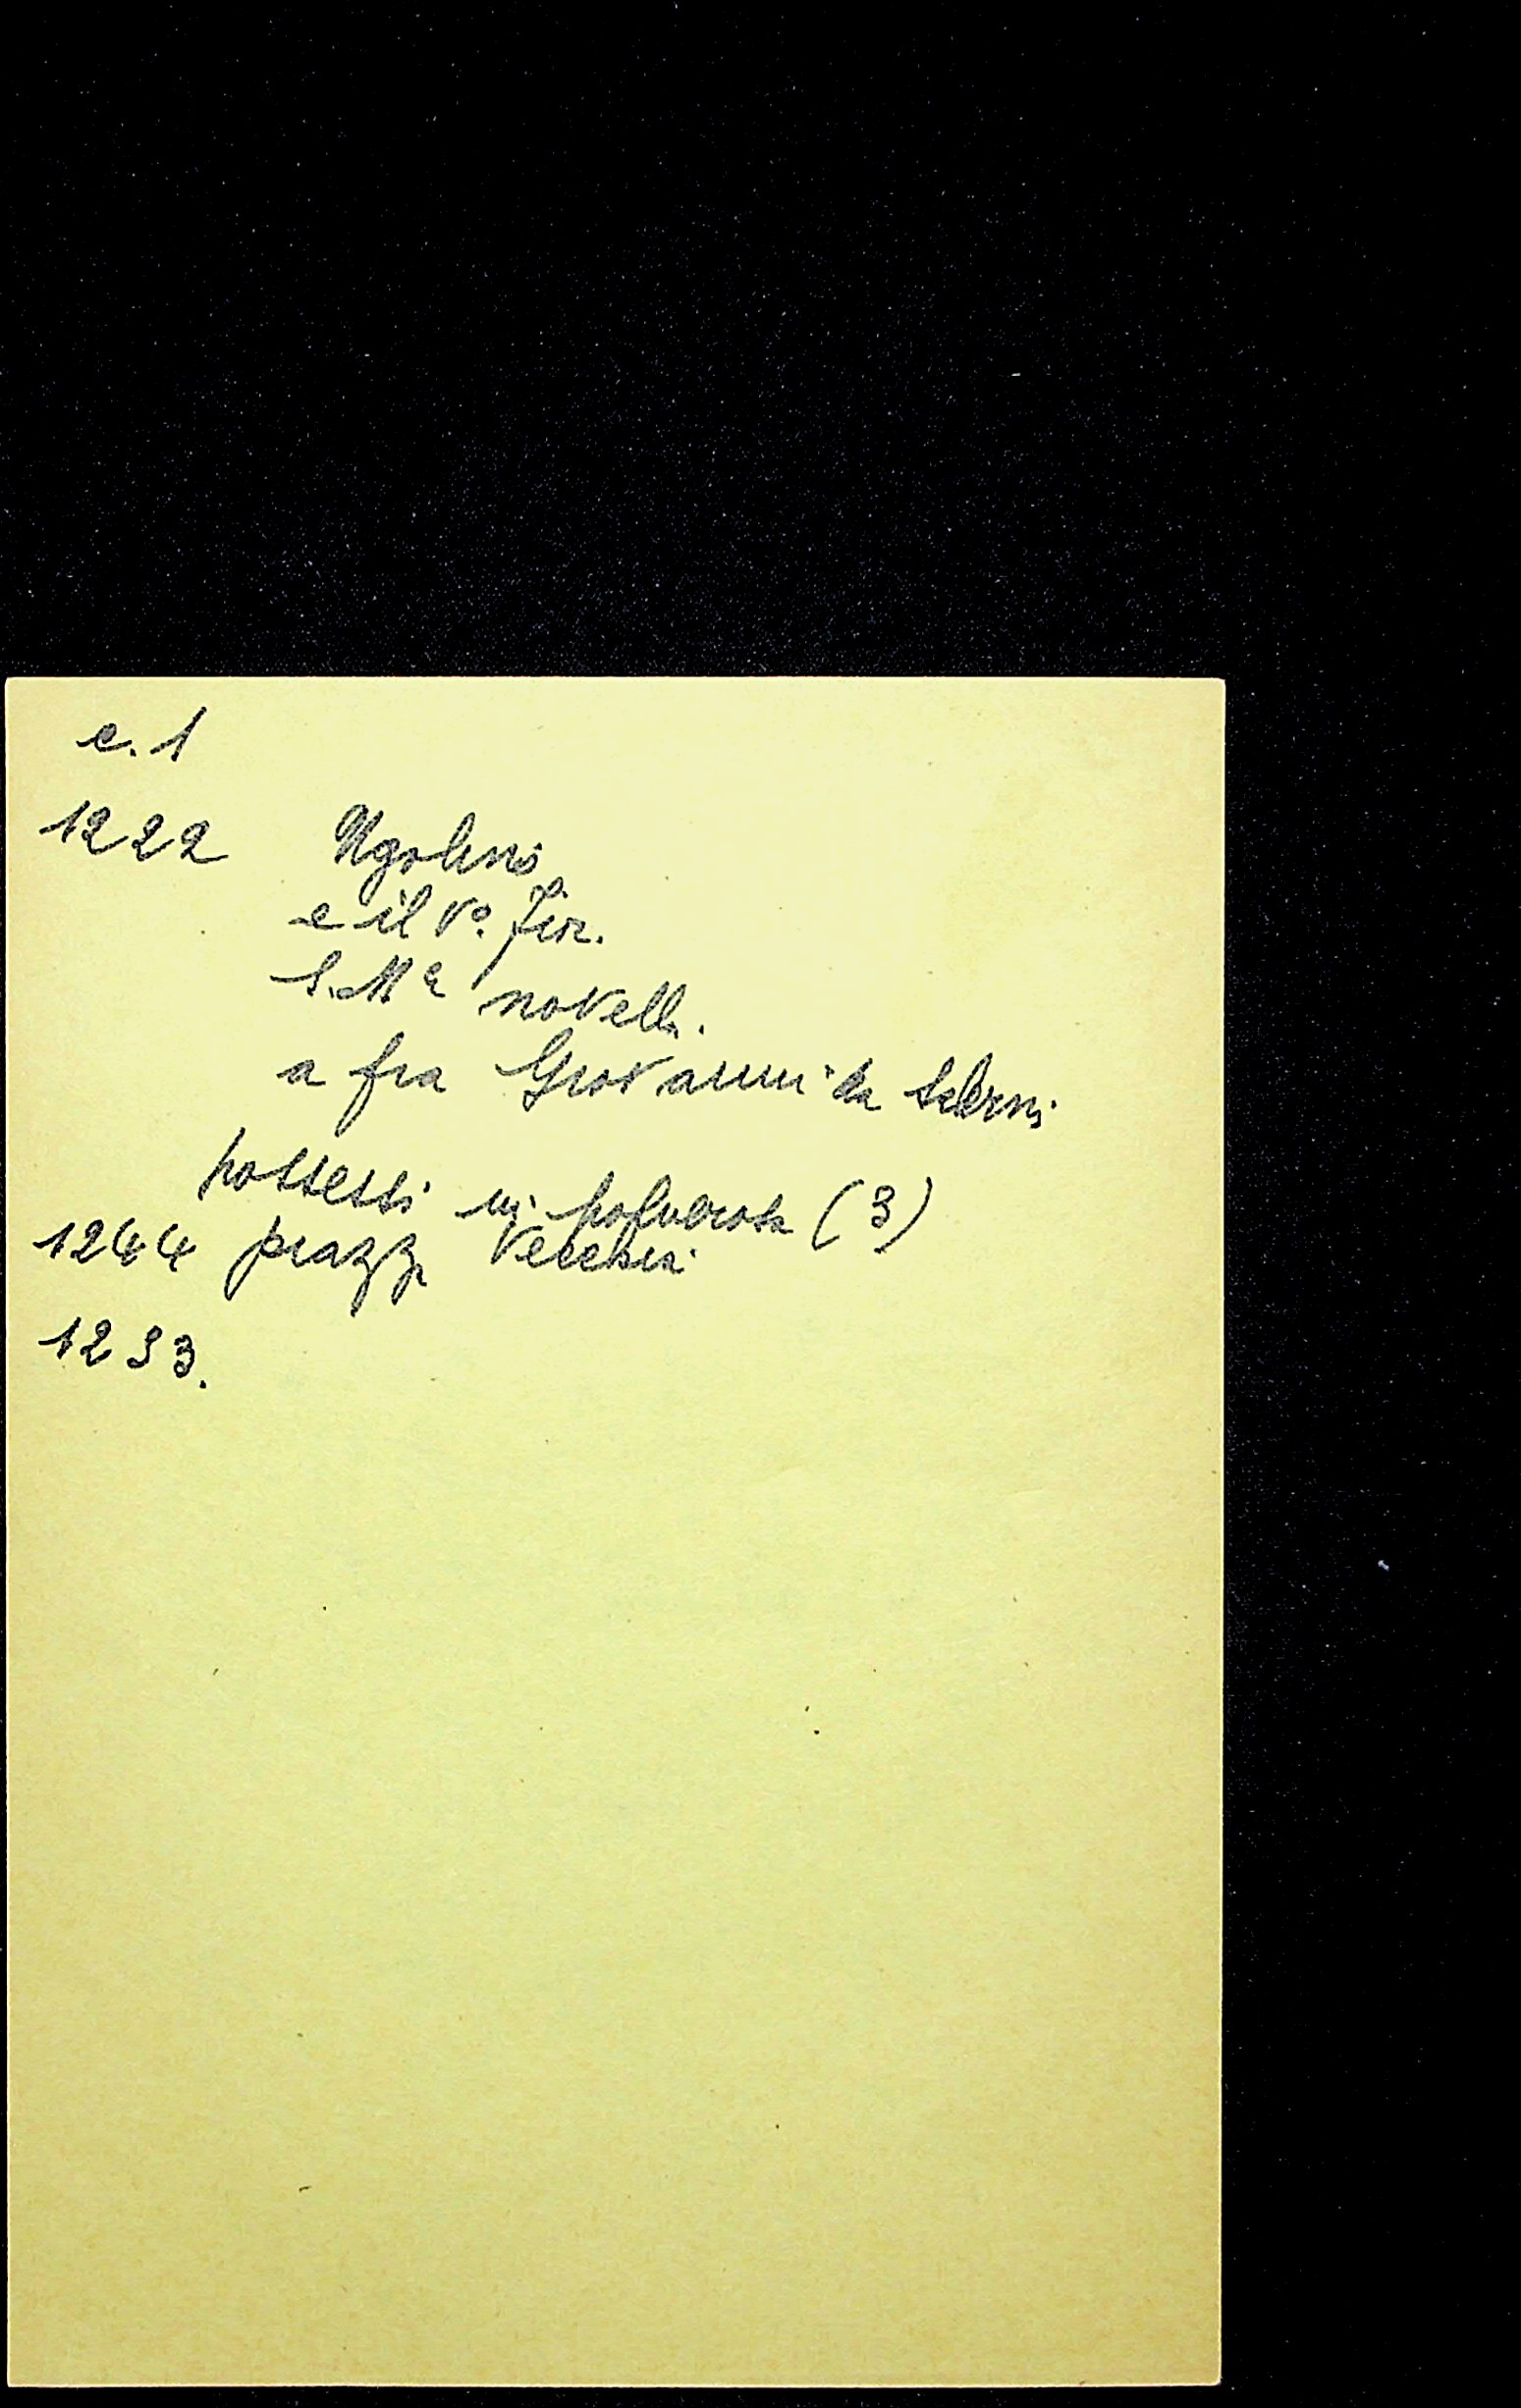 c. 1
1222 Ugolino
e il Vo. Fir.
S. Ma novella.
a fra Giovanni da Salerni
possessi in polverosa (3)
1244 piazza Vecchia
1293.